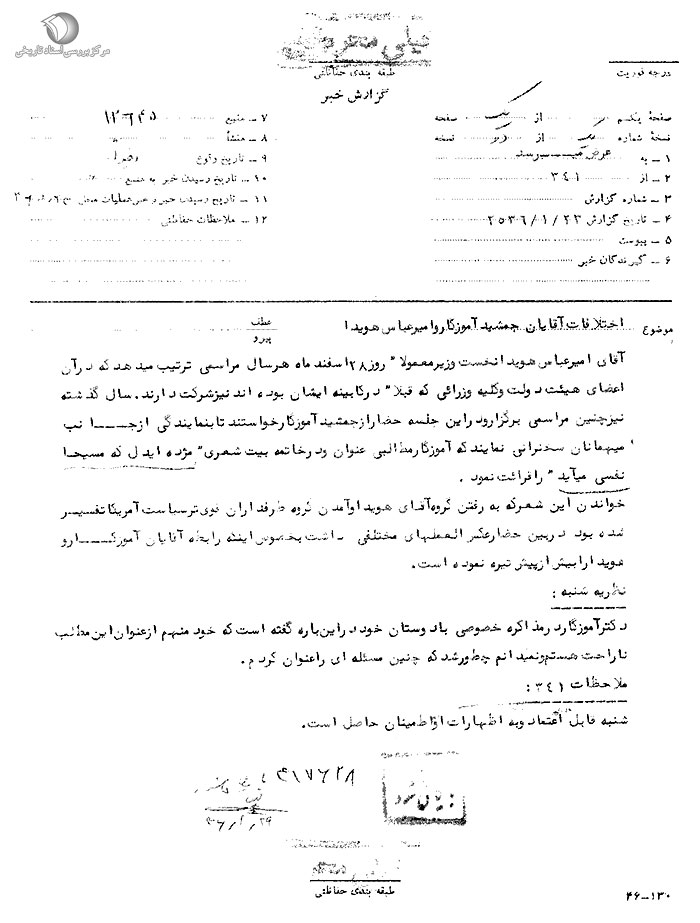 مرکز بررسی اسناد تاریخی
خیلی محرمانه
طبقه بندی حفاظتی
درجه فوریت
گزارش خبر
صفحهٔ یکم از یک صفحه
نسخهٔ شماره یک از نسخه
۱ ــ به عرض میرسد
۲ ــ از ۳۴۱
۳ ــ شماره گزارش
۴ ــ تاریخ گزارش ۲۵۳۶/۱/۲۳
۵ ــ پیوست
۶ ــ گیرندگان خبر
۷ ــ منبع ۱۲۶۴۵
۸ ــ منشأ
۹ ــ تاریخ وقوع
۱۰ ــ تاریخ رسیدن خبر به منبع
۱۱ ــ تاریخ رسیدن خبر به رهبر عملیات محل
۱۲ ــ ملاحظات حفاظتی
موضوع
اختلافات آقایان جمشید آموزگار و امیرعباس هویدا
عطف
پیرو
آقای امیرعباس هویدا نخست وزیر معمولا" روز ۲۸ اسفند ماه هر سال مراسمی ترتیب میدهد که در آن
اعضای هیئت دولت و کلیه وزرائی که قبلا" در کابینه ایشان بوده اند نیز شرکت دارند. سال گذشته
نیز چنین مراسمی برگزار و در این جلسه حضار از جمشید آموزگار خواستند تا بنمایندگی از جانب
میهمانان سخنرانی نمایند که آموزگار مطالبی عنوان و در خاتمه بیت شعری" مژده ایدل که مسیحا
نفسی میآید " را قرائت نمود .
خواندن این شعر که به رفتن گروه آقای هویدا و آمدن گروه طرفداران قوی تر سیاست آمریکا تفسیر
شده بود در بین حضار عکس العملهای مختلفی داشت بخصوص اینکه رابطه آقایان آموزگار و
هویدا را بیش از پیش تیره نموده است.
نظریه شنبه :
دکتر آموزگار در مذاکره خصوصی با دوستان خود در این باره گفته است که خود منهم از عنوان این مطالب
ناراحت هستم و نمیدانم چطور شد که چنین مسئله ای را عنوان کردم .
ملاحظات ۳۴۱ :
شنبه قابل اعتماد و به اظهارات او اطمینان حاصل است.
۳۱۷۶۲۸
بایگانی شود
۳۶/۱/۲۹
طبقه بندی حفاظتی
۴۶ــ۱۳۰